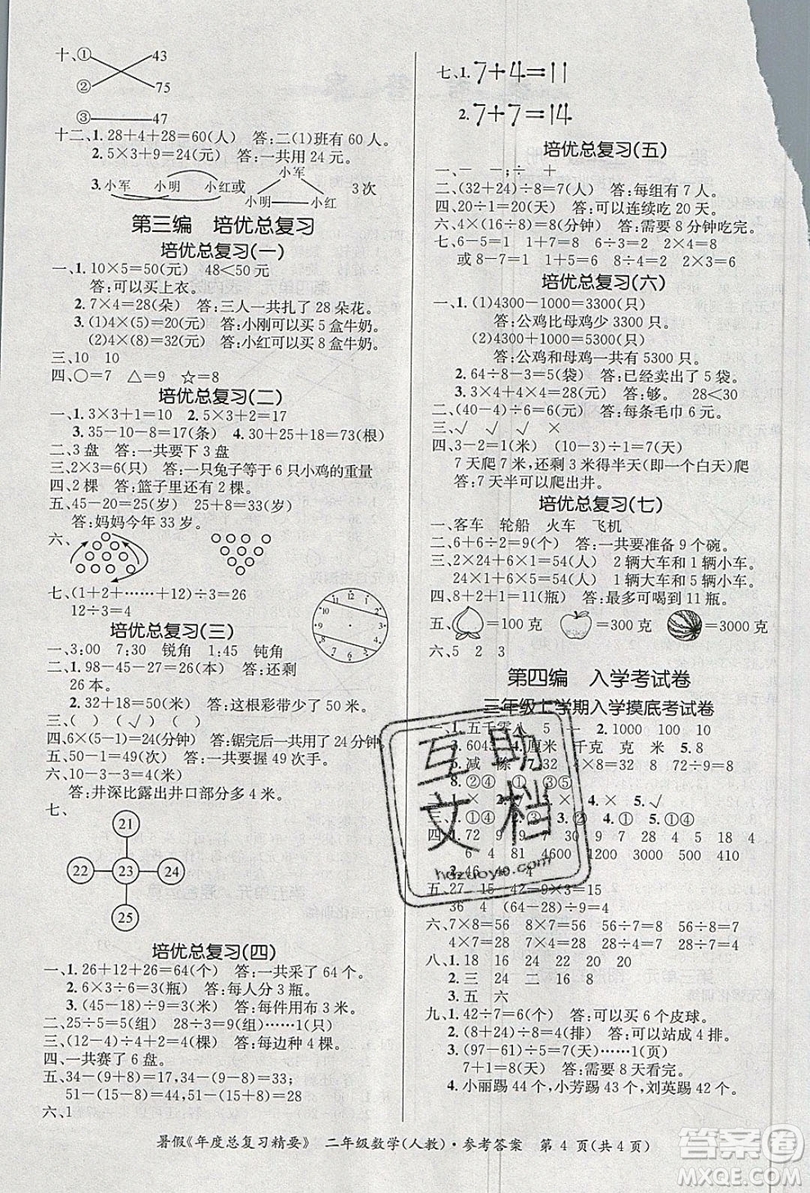 十、① 43
② 75
③ 47
十二、1. 28+4+28=60(人) 答:二(1)班有 60 人。
2. 5×3+9=24(元) 答:一共用 24 元。
3. 小军 小明 小红或 小军 小明 小红 3次
第三编 培优总复习
培优总复习(一)
一、1. 10×5=50(元) 48<50
答:可以买上衣。
2. 7×4=28(朵) 答:三人一共扎了 28 朵花。
3.(1)4×5=20(元) 答:小刚可以买 5 盒牛奶。
答:小红可以买 4 盒牛奶。
三、10 10
四、○=7 △=9 ☆=5
培优总复习(二)
一、1. 3×3+1=10 2. 5×3+2=17
3. 35-10-8=17(条) 4. 30+25+18=73(根)
二、3 盘 答:一共要下 3 盘。
三、2×3=6 答:一只兔子等于 6 只小鸡的重量
四、2 棵 答:篮子里还有 2 棵。
五、45-20=25(岁) 25+8=33(岁)
答:妈妈今年 33 岁。
六、
七、(1+2+……+12)÷3=26
12÷3=4
培优总复习(三)
一、1. 3:00 7:30 锐角 1:45 钝角
二、1. 98-45-27=26(本) 答:还剩
26 本。
2. 32+18=50(米) 答:这根彩带少了 50 米。
三、4
四、6×(5-1)=24(分钟) 答:锯完后一共用 24 分钟。
五、50-1=49(次) 答:一共要握 49 次手。
六、10-3-3=4(米)
答:井深比露出井口部分多 4 米。
七、
21
22 23 24
25
培优总复习(四)
一、1. 26+12+26=64(个) 答:一共采了 64 个。
2. 6×3÷6=3(瓶) 答:每人分 3 瓶。
3.(45-18)÷9=3(米) 答:每件用布 3 米。
二、25÷5=5(组) 28÷5=5(组)……1(只)
三、(12-4)÷4+2=4(棵) 答:每边种 4 棵。
四、一共赛了 6 盘。
五、34-(9+8)=17 44-(9+8)=27
51-(8+15)=28 51-(9+15)=27
六、1
七、1. 7+4=11
2. 7+7=14
培优总复习(五)
一、÷ - -;÷ + +
二、(32+24)÷8=7(人) 答:每组有 7 人。
四、20÷1=20(天) 答:可以连续吃 20 天。
六、4×(3-1)=8(分钟) 答:需要 8 分钟吃完。
七、6-5=1 1+7=8 8÷4=2 2×3=6
或 8-7=1 1+5=6 6÷3=2 2×4=8
培优总复习(六)
一、1.(1)4300-1000=3300(只)
答:公鸡比母鸡少 3300 只。
(2)4300+1000=5300(只)
答:公鸡和母鸡一共有 5300 只。
2. 64÷8-3=5(袋) 答:已经卖出了 5 袋。
3. 3×4+4×4=28(元) 答:够。 28<30
二、(40-4)÷6=6(元) 答:每条毛巾 6 元。
四、3-2=1(米) (10-3)÷1=7(天)
7 天爬 7 米,还剩 3 米(即第二天一个白天)爬去
7 天半可以爬出井。
培优总复习(七)
一、客车 轮船 火车 飞机
二、6+6÷2=9(个) 答:一共要准备 9 个碗。
三、2×24+6×1=54(人) 2 辆大车和 1 辆小车。
24×1+6×5=54(人) 1 辆大车和 5 辆小车。
四、8+2+1=11(瓶) 答:最多可喝到 11 瓶。
五、=100 克 =300 克 =3000 克
六、5 2 3
第四编 入学考试卷
三年级上学期入学摸底考试卷
一、1. 五千零 4 5 1 2. 1000 100 10
厘米 千克 克 米 5. 8
8. ②④ ①②⑤ ①③⑤
三、1. ①④ 3. ②④ 4. ①②⑤ 5. ①④
四、1. 72 9 9 30 9 28 4 5 18 4
6 4 81 1300 1000 6200 8 5 4
六、7×8=56 8×7=56 56÷7=8 56÷8=7
八、1. 16 15 23 20
2. 三 24 四
3. 五 六
九、1. 42÷7=6(个) 答:可以买 6 个皮球。
2.(8+24)÷8=4(排) 答:可以站成 4 排。
3.(97-61)÷5=7(页)……1(页)
7+1=8(天) 答:需要 8 天看完。
4. 小丽踢 44 个,小芳踢 53 个,刘英踢 32 个。
暑假《年度总复习精要》 二年级数学(人教)·参考答案 第 4 页(共 4 页)
互助文档
hdzuoye.com
答案圈
MXQE.COM